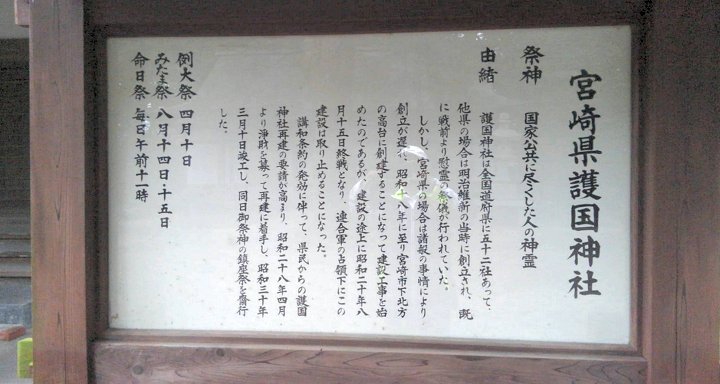 宮崎県護国神社
祭神　国家公共に尽くした人の神霊
由緒
護国神社は全国道府県に五十二社あって、
他県の場合は明治維新の当時に創立され、既
に戦前より慰霊の祭儀が行われていた。
しかし、宮崎県の場合は諸般の事情により
創立が遅れ、昭和十八年に至り宮崎市下北方
の高台に創建することになって建設工事を始
めたのであるが、建設の途上に昭和二十年八
月十五日終戦となり、連合軍の占領下にこの
建設は取り止めることになった。
講和条約の発効に伴って、県民からの護国
神社再建の要請が高まり、昭和二十八年四月
より浄財を募って再建に着手し、昭和三十年
三月十日竣工し、同日御祭神の鎮座祭を齋行
した。
例大祭　四月十日
みたま祭　八月十四日・十五日
命日祭　毎日午前十一時